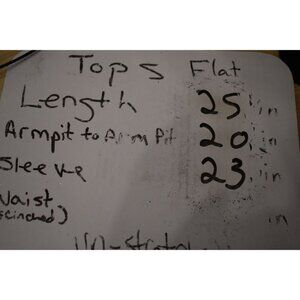 Tops Flat
Length 25 in
Armpit to Arm Pit 20 in
Sleeve 23 in
Waist in
(scinched)